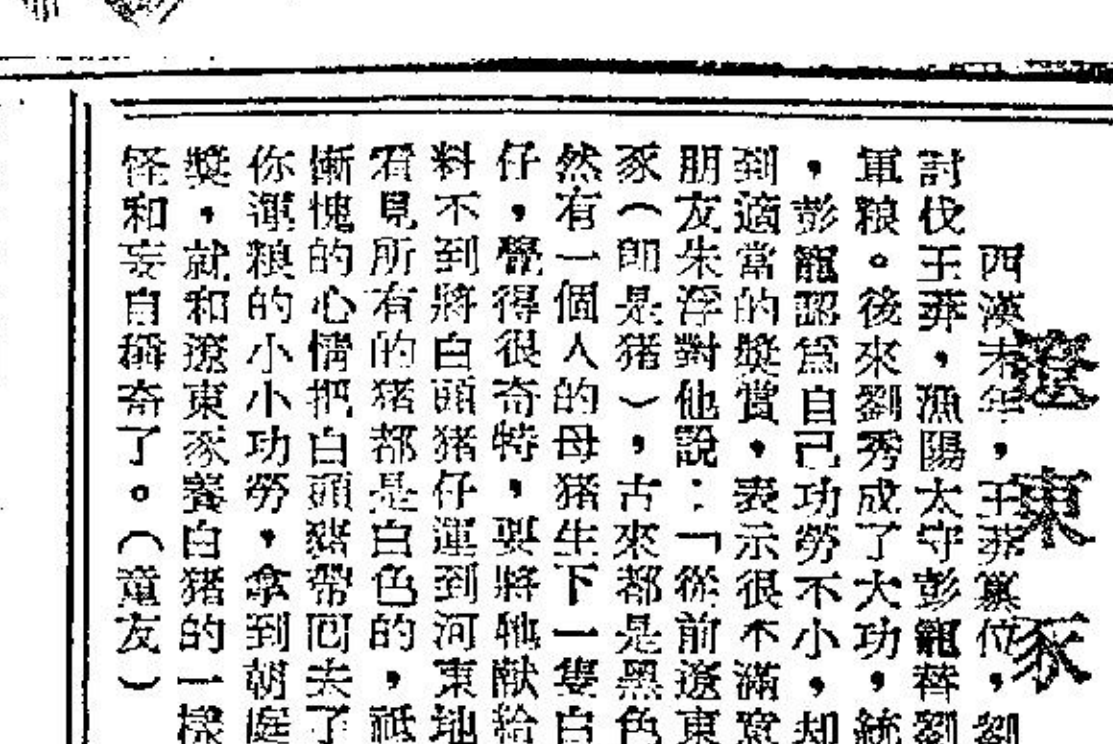 遼東豕
西漢末年，王莽篡位，劉
討伐王莽，漁陽太守彭寵替劉
軍粮。後來劉秀成了大功，統
，彭寵認爲自己功勞不小，却
到適當的獎賞，表示很不滿意
朋友朱浮對他說：「從前遼東
豕（卽是猪），古來都是黑色
然有一個人的母猪生下一隻白
仔，覺得很奇特，要將牠献給
料不到將白頭猪仔運到河東地
看見所有的猪都是白色的，祗
慚愧的心情把白頭豬帶囘去了
你運粮的小小功勞，拿到朝庭
獎，就和遼東豕養白猪的一樣
怪和妄自稱奇了。（童友）